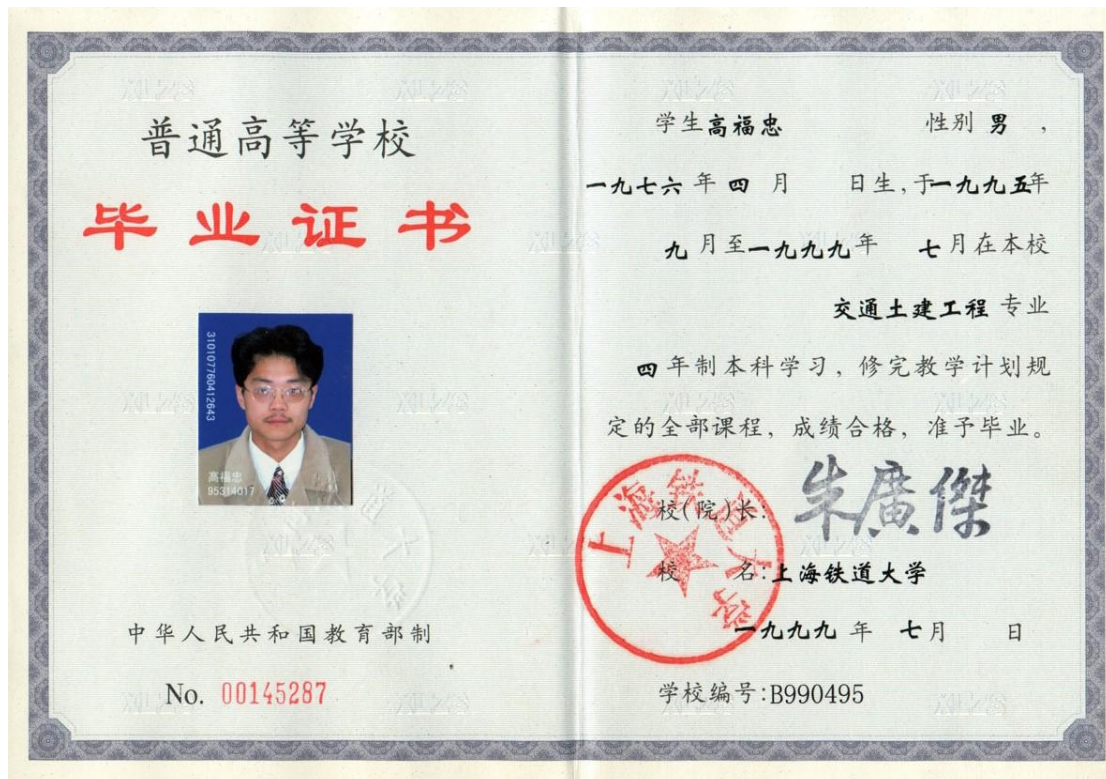 普通高等学校
毕业证书
310107760412643
高福忠
95314017
中华人民共和国教育部制
No. 00145287
学生高福忠 性别 男，
一九七六 年 四 月 日生，于一九九五年
九 月至一九九九年 七月在本校
交通土建工程 专业
四 年制本科学习，修完教学计划规
定的全部课程，成绩合格，准予毕业。
校(院)长：朱廣傑
校 名：上海铁道大学
上海铁道大学
一九九九 年 七月 日
学校编号：B990495